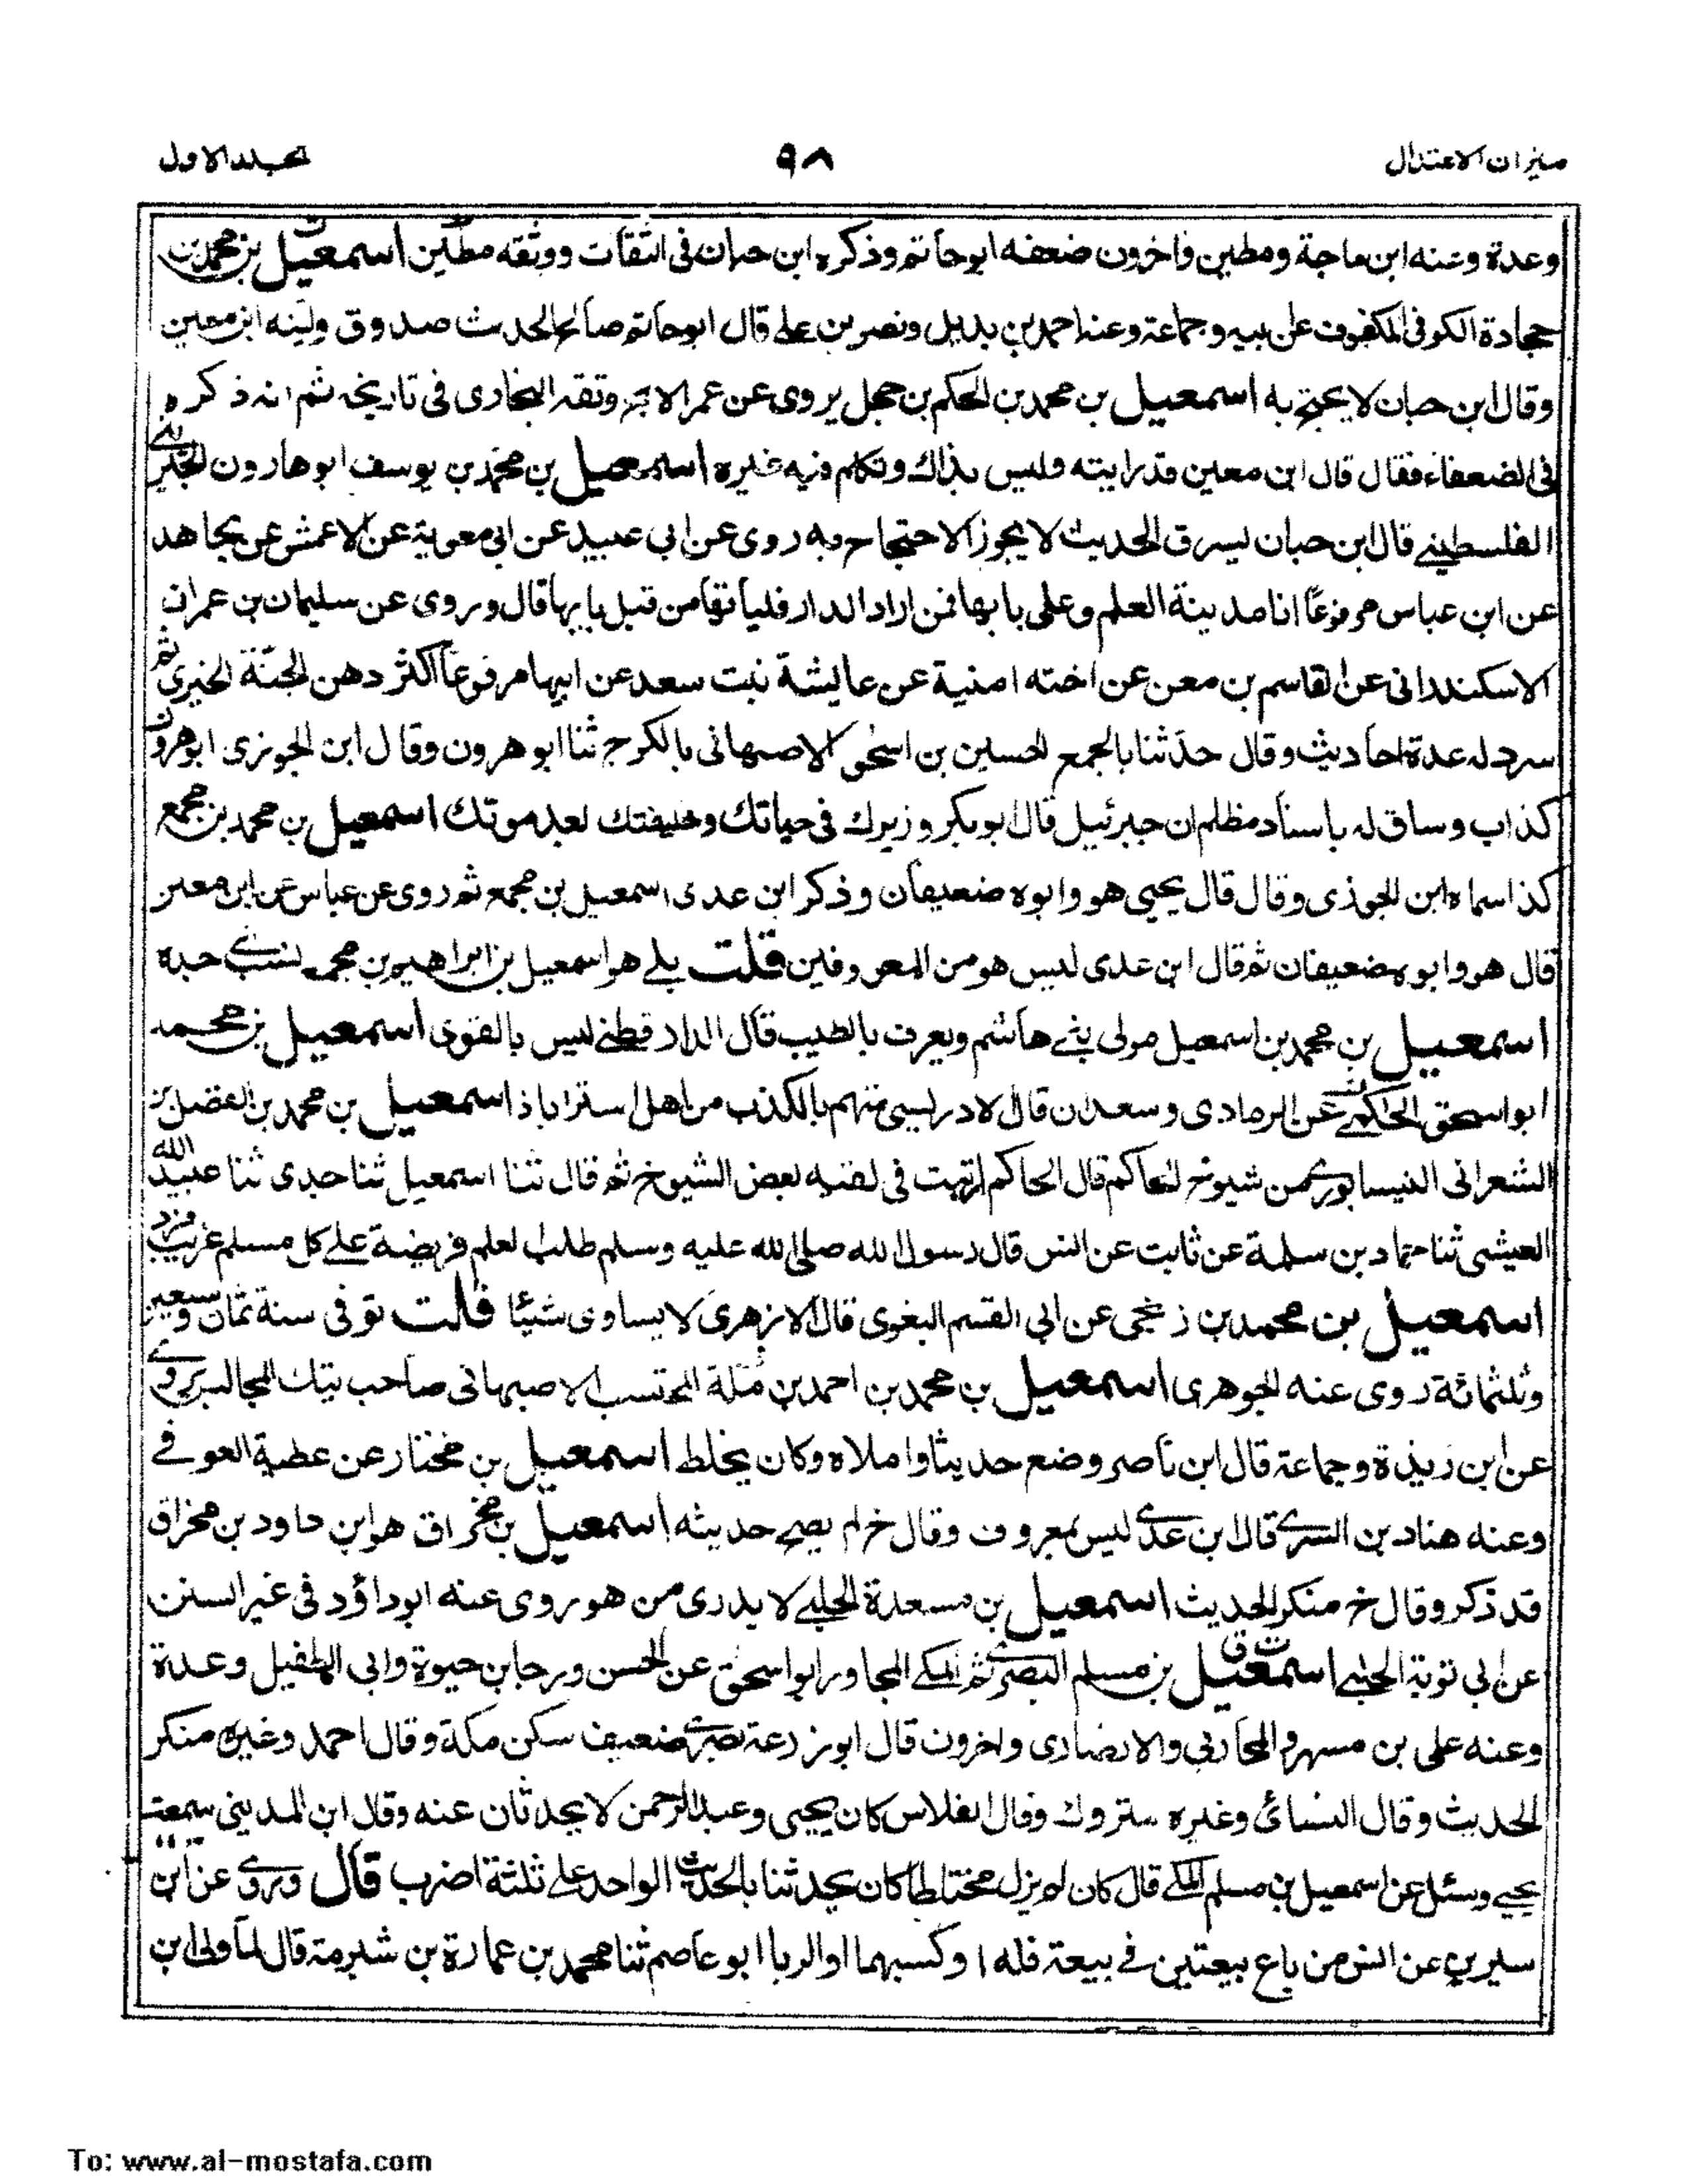 ميزان الاعتدال
٩٨
مجلد الاول
وعدة وعنه ابن ماجة ومطين واخرون ضعفه ابو حاتم وذكره ابن حبان فى الثقات ووثقه مطين اسمعيل بن محمد بن
جحادة الكوفى المكفوف عن ابيه وجماعة وعنه احمد بن بديل ونصر بن على قال ابو حاتم صالح الحديث صدوق ولينه ابن معين
وقال ابن حبان لا يحتج به اسمعيل بن محمد بن الحكم بن حجل يروى عن عمر الابح وثقه البخارى فى تاريخه ثم انه ذكره
فى الضعفاء فقال قال ابن معين قد رايته وليس بذاك وتكلم فيه غيره اسمعيل بن محمد بن يوسف ابو هارون الجبرينى
الفلسطينى قال ابن حبان يسرق الحديث لا يجوز الاحتجاج به روى عن ابى عبيد عن ابى معوية عن الاعمش عن مجاهد
عن ابن عباس مرفوعًا انا مدينة العلم وعلى بابها فمن اراد الدار فلياتها من قبل بابها قال وروى عن سليمان بن عمران
الاسكندانى عن القاسم بن معن عن اخته امنية عن عايشة بنت سعد عن ابيها مرفوعًا اكثر دهن الجنة الخيرى ثم
سرد له عدة احاديث وقال حدثنا بالجمع الحسين بن اسحق الاصبهانى بالكرج ثنا ابو هرون وقال ابن الجوزى ابو هرون
كذاب وساق له باسناد مظلم ان جبرئيل قال ابو بكر وزيرك فى حياتك وخليفتك بعد موتك اسمعيل بن محمد بن مجمع
كذا سماه ابن الجوزى وقال قال يحيى هو وابوه ضعيفان وذكر ابن عدى اسمعيل بن مجمع ثم روى عن عباس عن ابن معين
قال هو وابوه ضعيفان ثم قال ابن عدى ليس هو من المعروفين قلت بلى هو اسمعيل بن ابراهيم بن مجمع نسب الى جده
اسمعيل بن محمد بن اسمعيل مولى بنى هاشم ويعرف بالطيب قال الدارقطنى ليس بالقوى اسمعيل بن محمد
ابو اسحق الحاكمى عن الرمادى وسعدان قال الادريسى متهم بالكذب من اهل استراباذ اسمعيل بن محمد بن الفضل بن
الشعرانى النيسابورى من شيوخ الحاكم قال الحاكم ارتبت فى لقيه بعض الشيوخ ثم قال ثنا اسمعيل ثنا جدى ثنا عبيد الله
العيشى ثنا حماد بن سلمة عن ثابت عن انس قال رسول الله صلى الله عليه وسلم طلب العلم فريضة على كل مسلم غريب فرد
اسمعيل بن محمد بن زنجى عن ابى القسم البغوى قال الازهرى لا يساوى شيئا قلت توفى سنة ثمان وسبعين
وثلثمائة روى عنه الجوهرى اسمعيل بن محمد بن احمد بن ملة المحتسب الاصبهانى صاحب تيك المجالس يروى
عن ابن ريذة وجماعة قال ابن ناصر وضع حديثا واملاه وكان يخلط اسمعيل بن مختار عن عطية العوفى
وعنه هناد بن السرى قال ابن عدى ليس بمعروف وقال خ لم يصح حديثه اسمعيل بن مخراق هو ابن داود بن مخراق
قد ذكر وقال خ منكر الحديث اسمعيل بن مسعدة الحلبى لا يدرى من هو روى عنه ابو داؤد فى غير السنن
عن ابى توبة الحلبى اسمعيل ت ق بن مسلم البصرى ثم المكى المجاور ابو اسحق عن الحسن ورجا بن حيوة وابى الطفيل وعدة
وعنه على بن مسهر والمحاربى والانصارى واخرون قال ابو زرعة بصرى ضعيف سكن مكة وقال احمد وغيره منكر
الحديث وقال النسائى وغيره متروك وقال الفلاس كان يحيى وعبد الرحمن لا يحدثان عنه وقال ابن المدينى سمعت
يحيى وسئل عن اسمعيل بن مسلم المكى قال كان لم يزل مختلطا كان يحدثنا بالحديث الواحد على ثلثة اضرب قال وروى عن ابن
سيرين عن انس من باع بيعتين فى بيعة فله اوكسهما او الربا ابو عاصم ثنا محمد بن عمارة بن شبرمة قال لما ولى ابن
To: www.al-mostafa.com